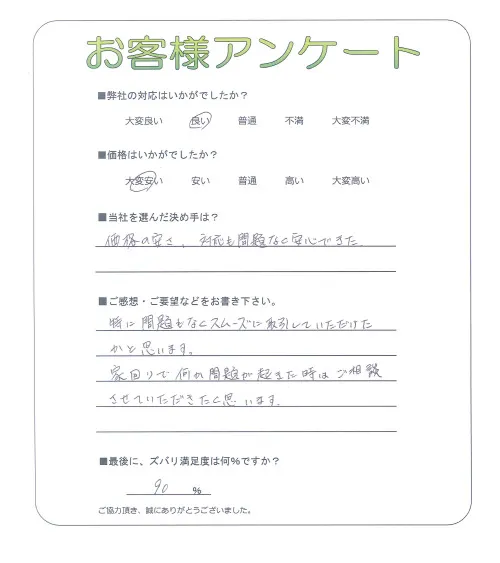 お客様アンケート
■弊社の対応はいかがでしたか？
大変良い 良い 普通 不満 大変不満
■価格はいかがでしたか？
大変安い 安い 普通 高い 大変高い
■当社を選んだ決め手は？
価格の安さ、対応も問題なく安心できた
■ご感想・ご要望などをお書き下さい。
特に問題もなくスムーズに取引していただけた
かと思います。
家回りで何か問題が起きた時はご相談
させていただきたく思います。
■最後に、ズバリ満足度は何％ですか？
90 ％
ご協力頂き、誠にありがとうございました。